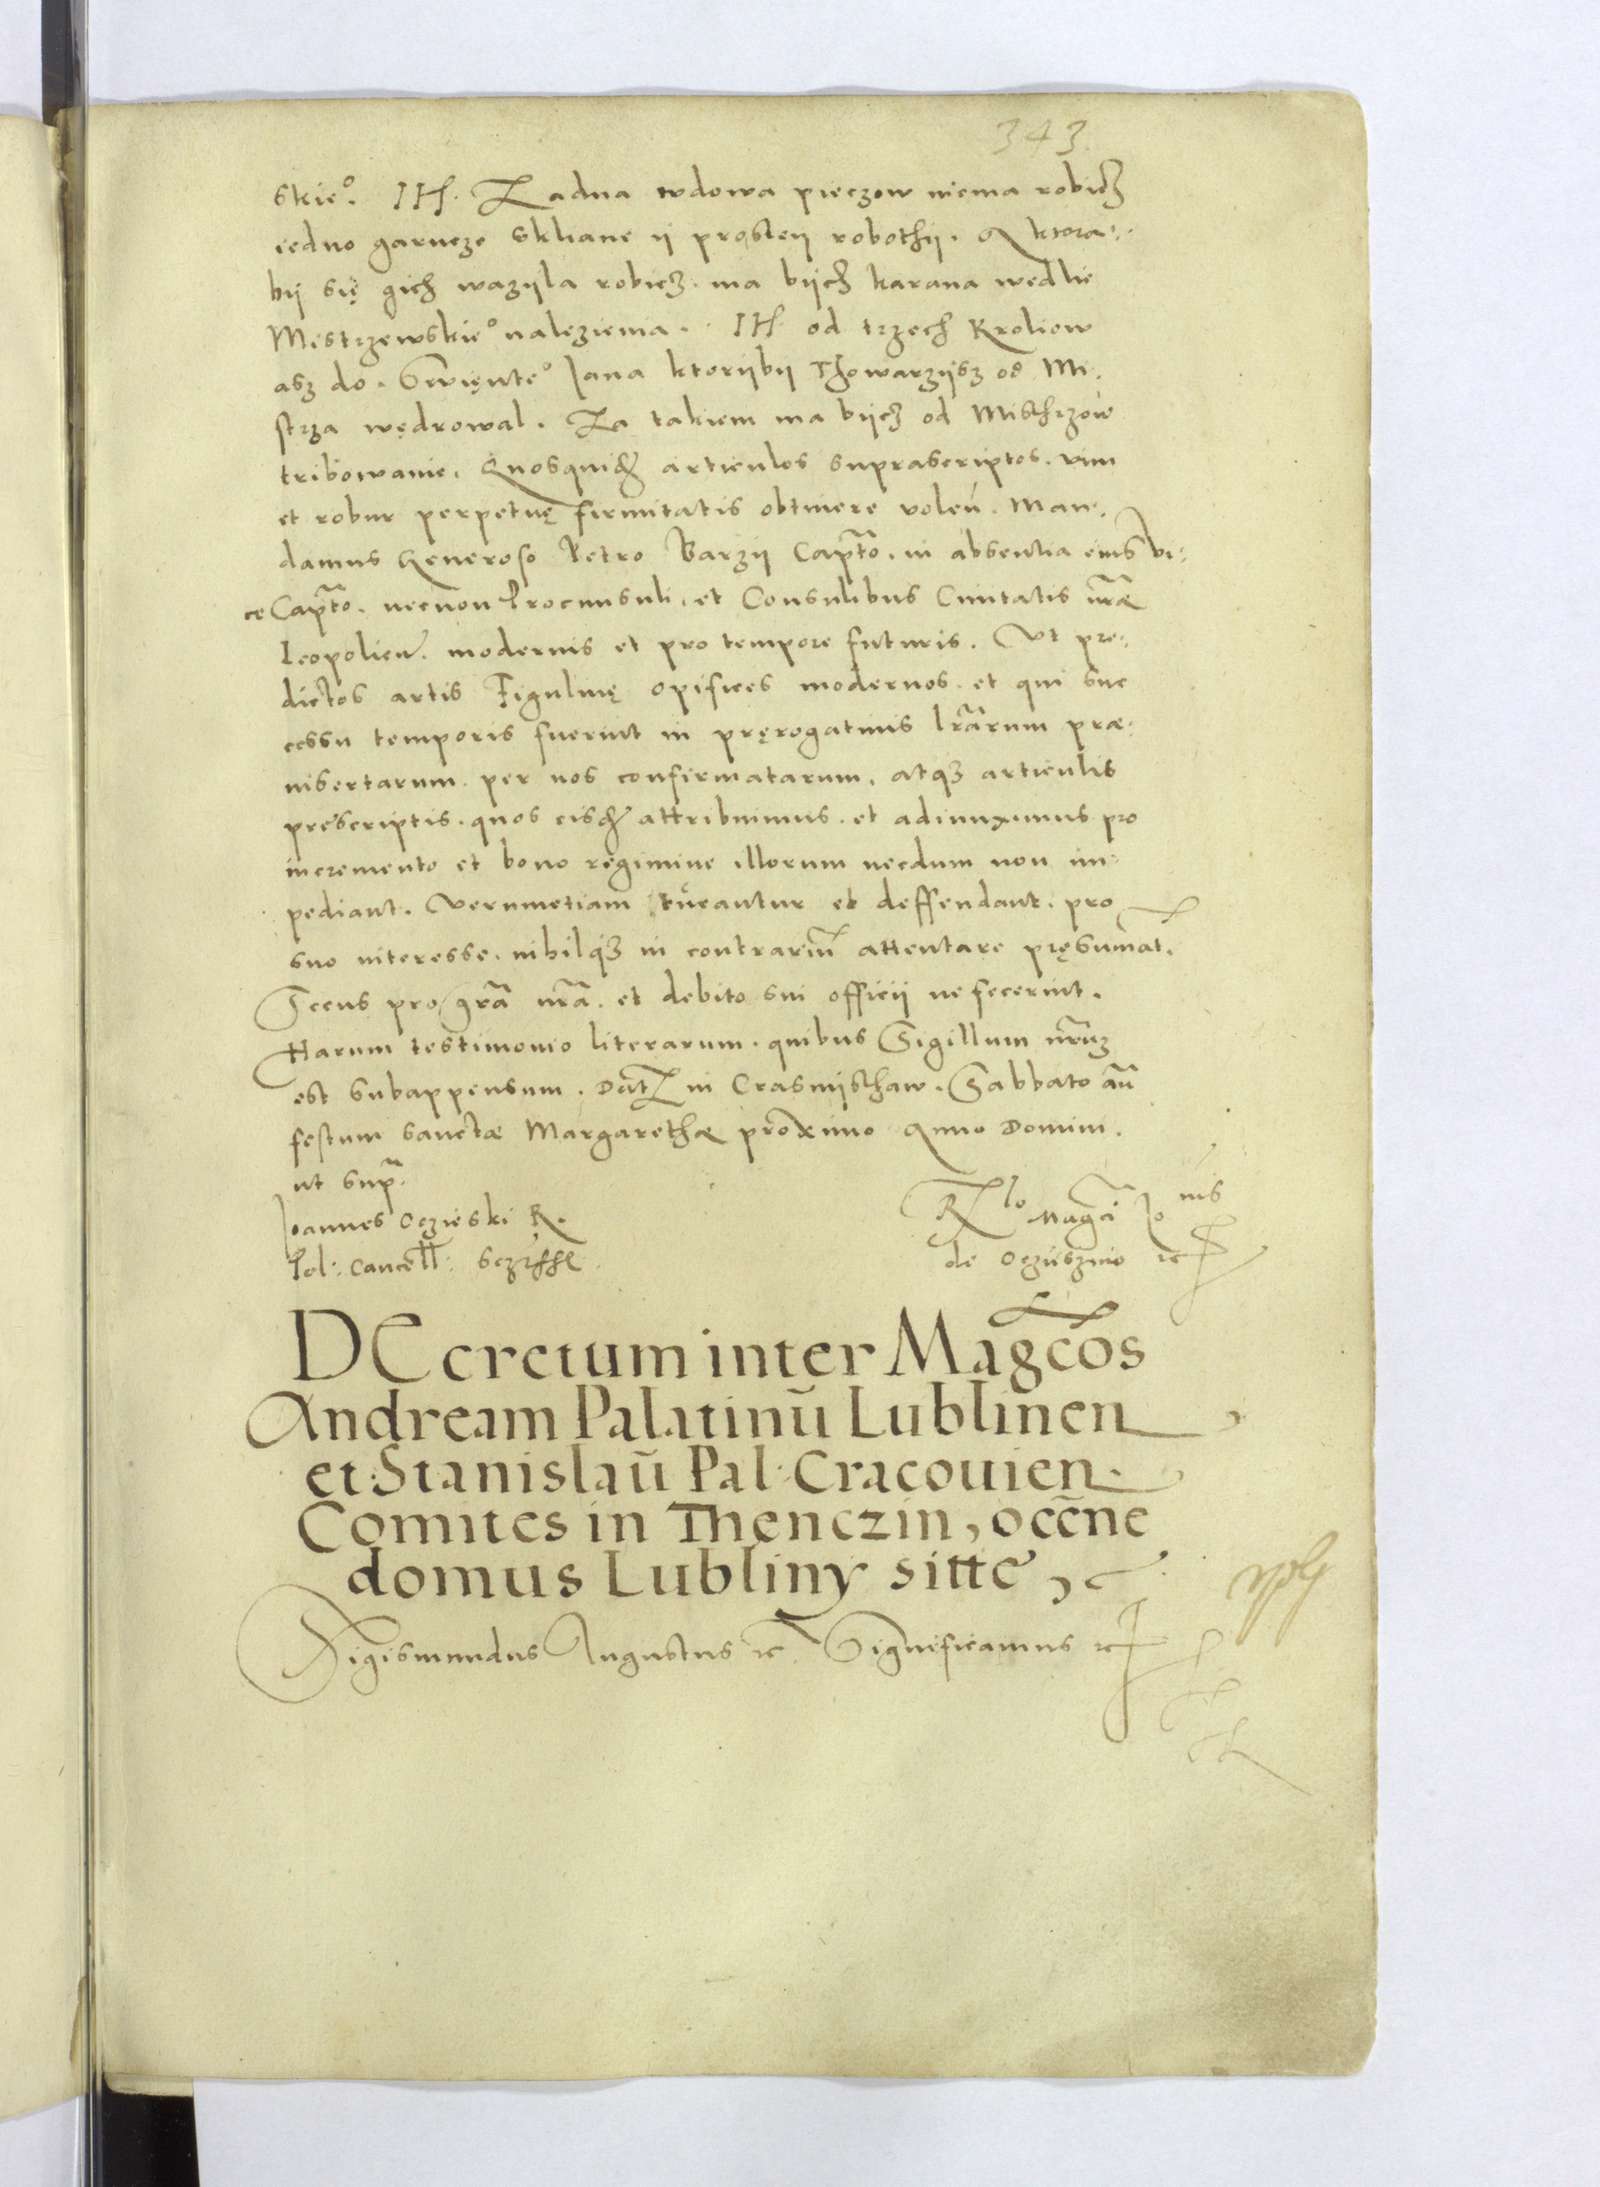 343
skieº. It̃. Zadna wdowa pieczow niema robicz
iedno garncze skliane ij prostey robothij. A ktora=
bij się gich wazijla robicz. ma bijcz karana wedlie
Mistrzewskieº nalezienia. It̃. od trzech Kroliow
asz do. Swięnteº Jana ktorijbij Thowarzijsz od Mi=
strza wędrowal. Za takiem ma bijcz od Misthrzow
tribowanie. Quosquidẽ articulos suprascriptos. vim
et robur perpetuę firmitatis obtinere voleñ. Man=
damus Generoso Petro Barzij Capṫo. in absentia eius Vi=
ce Capṫo. necnon Proconsuli, et Consulibus Ciuitatis nr̃æ
Leopolien̄. modernis et pro tempore futuris. Vt pre=
dictos artis Figulinę opifices modernos. et qui suc
cessu temporis fuerint in pręrogatiuis lr̃arum præ=
insertarum. per nos confirmatarum, atqȝ articulis
prescriptis. quos eisdẽ attribuimus. et adiunximus pro
incremento et bono regimine illorum necdum non im=
pediant. Verumetiam tueantur et deffendant. pro
suo interesse. nihilqȝ in contrariũ attentare pręsumãt.
Secus pro gr̃a nr̃a. et debito sui officii ne fecerint.
Harum testimonio literarum. quibus Sigillum nr̃uȝ
est subappensum. Dat̃ in Crasnijsthaw. Sabbato an̄
festum sanctæ Margarethæ proximo Anno Domini.
ut sup̃.
Joannes Oczieski R.
Pol: Cancell: sczfft
Rlo Magci Jonis
de Oczieszino ꝛc
DEcretum inter Magc̃os
Andream Palatinũ Lublinen
et Stanislaũ Pal: Cracouien.
Comites in Thenczin, occ̃ne
domus Lubliny sitte,
Sigismundus Augustus ꝛc Significamus ꝛc